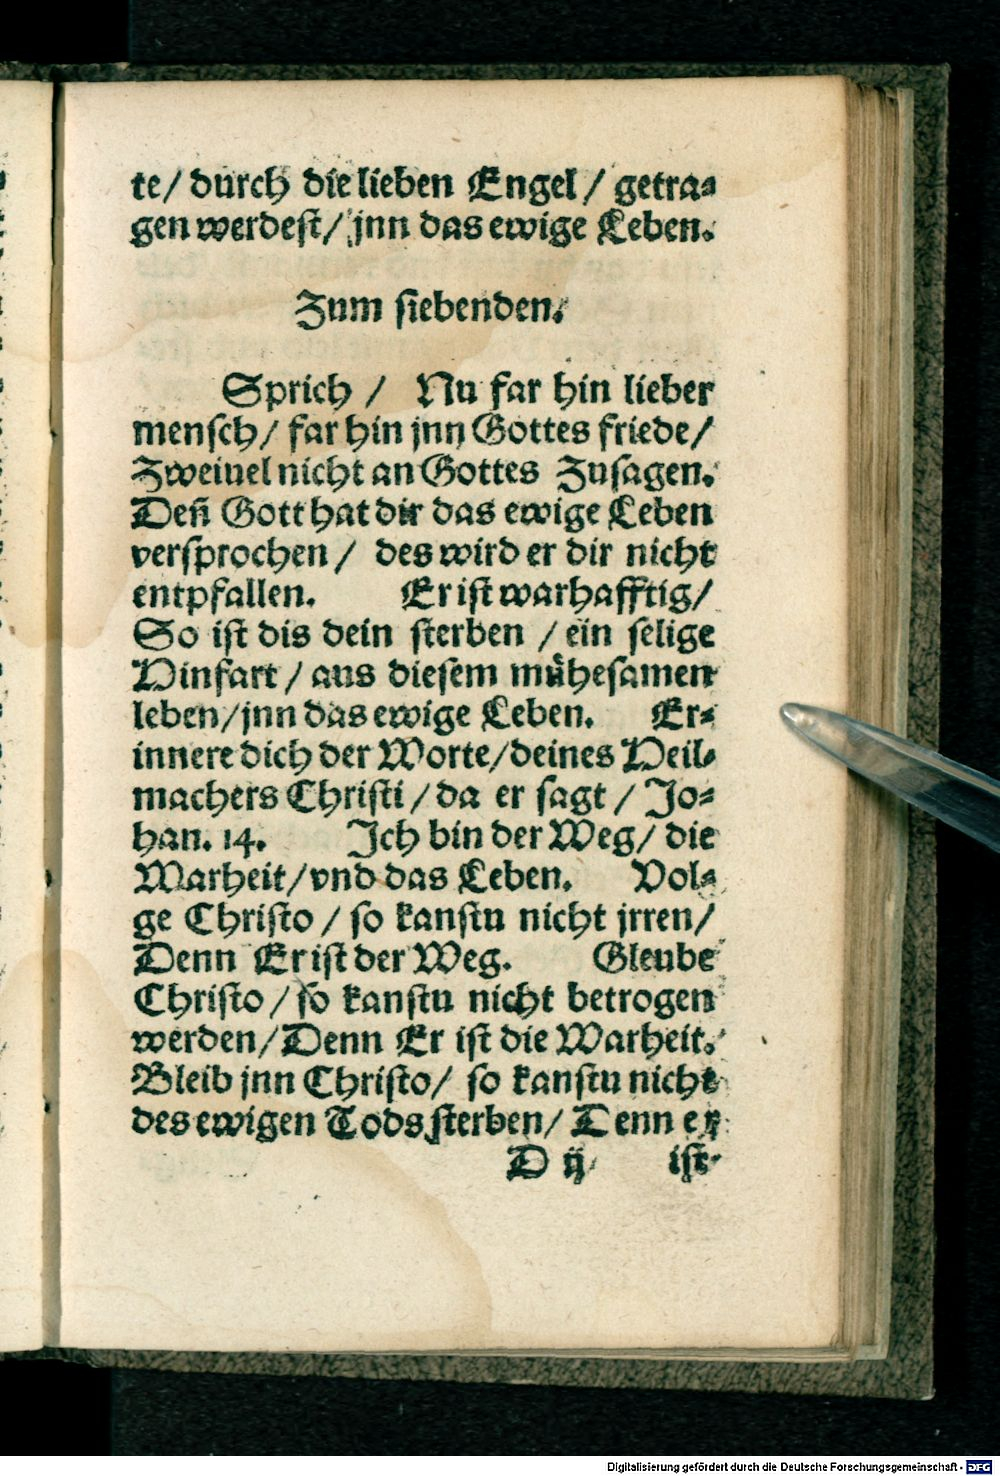 te/ durch die lieben Engel/ getra⸗
gen werdest/ jnn das ewige Leben.
Zum siebenden.
Sprich/ Nu far hin lieber
mensch/ far hin jnn Gottes friede/
Zweiuel nicht an Gottes Zusagen.
Deñ Gott hat dir das ewige Leben
versprochen/ des wird er dir nicht
entpfallen. Er ist warhafftig/
So ist dis dein sterben/ ein selige
Hinfart/ aus diesem mühesamen
leben/ jnn das ewige Leben. Er⸗
innere dich der Worte/ deines Heil⸗
machers Christi/ da er sagt/ Jo⸗
han. 14. Ich bin der Weg/ die
Warheit/ vnd das Leben. Vol⸗
ge Christo/ so kanstu nicht jrren/
Denn Er ist der Weg. Gleube
Christo/ so kanstu nicht betrogen
werden/ Denn Er ist die Warheit.
Bleib jnn Christo/ so kanstu nicht
des ewigen Tods sterben/ Denn er
D ij ist
Digitalisierung gefördert durch die Deutsche Forschungsgemeinschaft - DFG